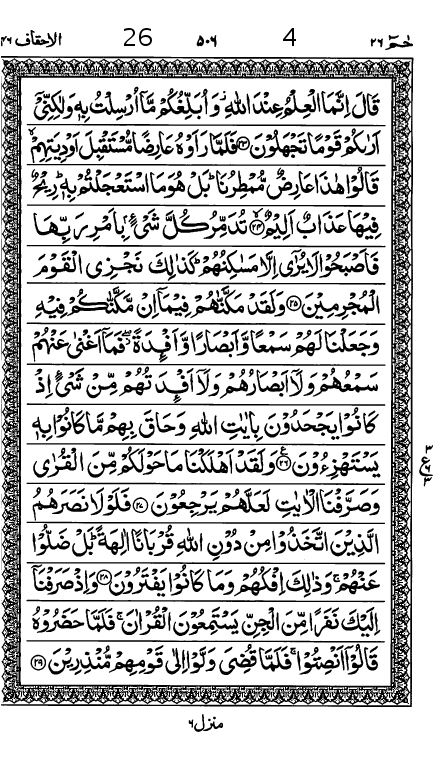 حٰمٓ ٢٦ 4 ٥٠٦ 26 الاحقاف ٤٦
قَالَ اِنَّمَا الْعِلْمُ عِنْدَ اللّٰهِ ۖ وَ اُبَلِّغُكُمْ مَّاۤ اُرْسِلْتُ بِهٖ وَ لٰكِنِّیْۤ
اَرٰىكُمْ قَوْمًا تَجْهَلُوْنَ ﴿۲۳﴾ فَلَمَّا رَاَوْهُ عَارِضًا مُّسْتَقْبِلَ اَوْدِیَتِهِمْ ۙ
قَالُوْا هٰذَا عَارِضٌ مُّمْطِرُنَا ؕ بَلْ هُوَ مَا اسْتَعْجَلْتُمْ بِهٖ ؕ رِیْحٌ
فِیْهَا عَذَابٌ اَلِیْمٌ ﴿۲۴﴾ۙ تُدَمِّرُ كُلَّ شَیْءٍۭ بِاَمْرِ رَبِّهَا
فَاَصْبَحُوْا لَا یُرٰۤی اِلَّا مَسٰكِنُهُمْ ؕ كَذٰلِكَ نَجْزِی الْقَوْمَ
الْمُجْرِمِیْنَ ﴿۲۵﴾ وَ لَقَدْ مَكَّنّٰهُمْ فِیْمَاۤ اِنْ مَّكَّنّٰكُمْ فِیْهِ
وَ جَعَلْنَا لَهُمْ سَمْعًا وَّ اَبْصَارًا وَّ اَفْـِٕدَةً ۖ فَمَاۤ اَغْنٰی عَنْهُمْ
سَمْعُهُمْ وَ لَاۤ اَبْصَارُهُمْ وَ لَاۤ اَفْـِٕدَتُهُمْ مِّنْ شَیْءٍ اِذْ
كَانُوْا یَجْحَدُوْنَ بِاٰیٰتِ اللّٰهِ وَ حَاقَ بِهِمْ مَّا كَانُوْا بِهٖ
یَسْتَهْزِءُوْنَ ﴿۲۶﴾ وَ لَقَدْ اَهْلَكْنَا مَا حَوْلَكُمْ مِّنَ الْقُرٰی
وَ صَرَّفْنَا الْاٰیٰتِ لَعَلَّهُمْ یَرْجِعُوْنَ ﴿۲۷﴾ فَلَوْ لَا نَصَرَهُمُ
الَّذِیْنَ اتَّخَذُوْا مِنْ دُوْنِ اللّٰهِ قُرْبَانًا اٰلِهَةً ؕ بَلْ ضَلُّوْا
عَنْهُمْ ۚ وَ ذٰلِكَ اِفْكُهُمْ وَ مَا كَانُوْا یَفْتَرُوْنَ ﴿۲۸﴾ وَ اِذْ صَرَفْنَاۤ
اِلَیْكَ نَفَرًا مِّنَ الْجِنِّ یَسْتَمِعُوْنَ الْقُرْاٰنَ ۚ فَلَمَّا حَضَرُوْهُ
قَالُوْۤا اَنْصِتُوْا ۚ فَلَمَّا قُضِیَ وَلَّوْا اِلٰی قَوْمِهِمْ مُّنْذِرِیْنَ ﴿۲۹﴾
منزل ٦